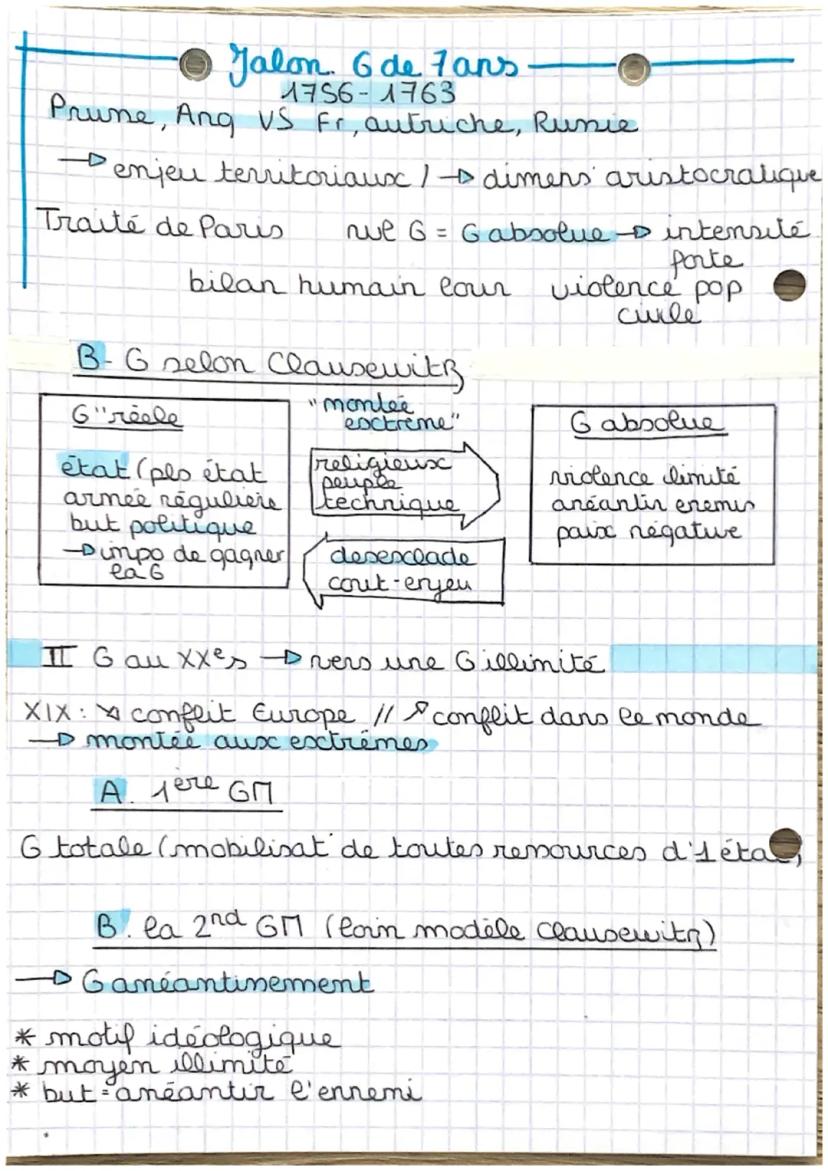 Jalon. G de 7 ans
1756-1763
Prusse, Ang VS Fr, autriche, Russie
→ enjeu territoriaux / → dimens° aristocratique
Traité de Paris nvl G = G absolue → intensité forte
bilan humain lour violence pop civile
B- G selon Clausewitz
G "réele
état (pls état
armée régulière
but politique
→ impo de gagner
la G
"montée
extrème"
religieux
peuple
technique
desesclade
cout-enjeu
G absolue
violence limité
anéantir enemis
paix négative
II G au XXes → vers une G illimité
XIX: ↘ conflit Europe // ↗ conflit dans le monde
→ montée aux extrêmes
A. 1ère GM
G totale (mobilisat° de toutes ressources d'1 état)
B. la 2nd GM (loin modèle Clausewitz)
→ G anéantissement
* motif idéologique
* moyen illimité
* but = anéantir l'ennemi